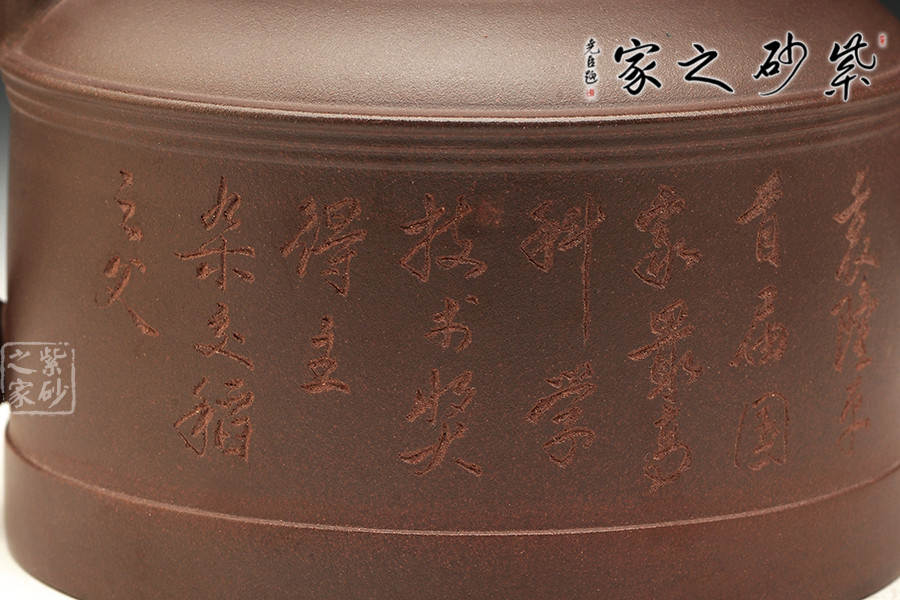 紫砂之家
尧臣题
袁隆平
首届国
家最高
科学
技术奖
得主
杂交稻
之父
紫砂
之家